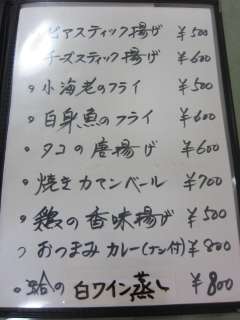 ピアスティック揚げ ¥500
チーズスティック揚げ ¥600
小海老のフライ ¥500
白身魚のフライ ¥600
タコの唐揚げ ¥600
焼きカマンベール ¥700
鶏の香味揚げ ¥500
おつまみカレー(ナン付) ¥800
蛤の白ワイン蒸し ¥800